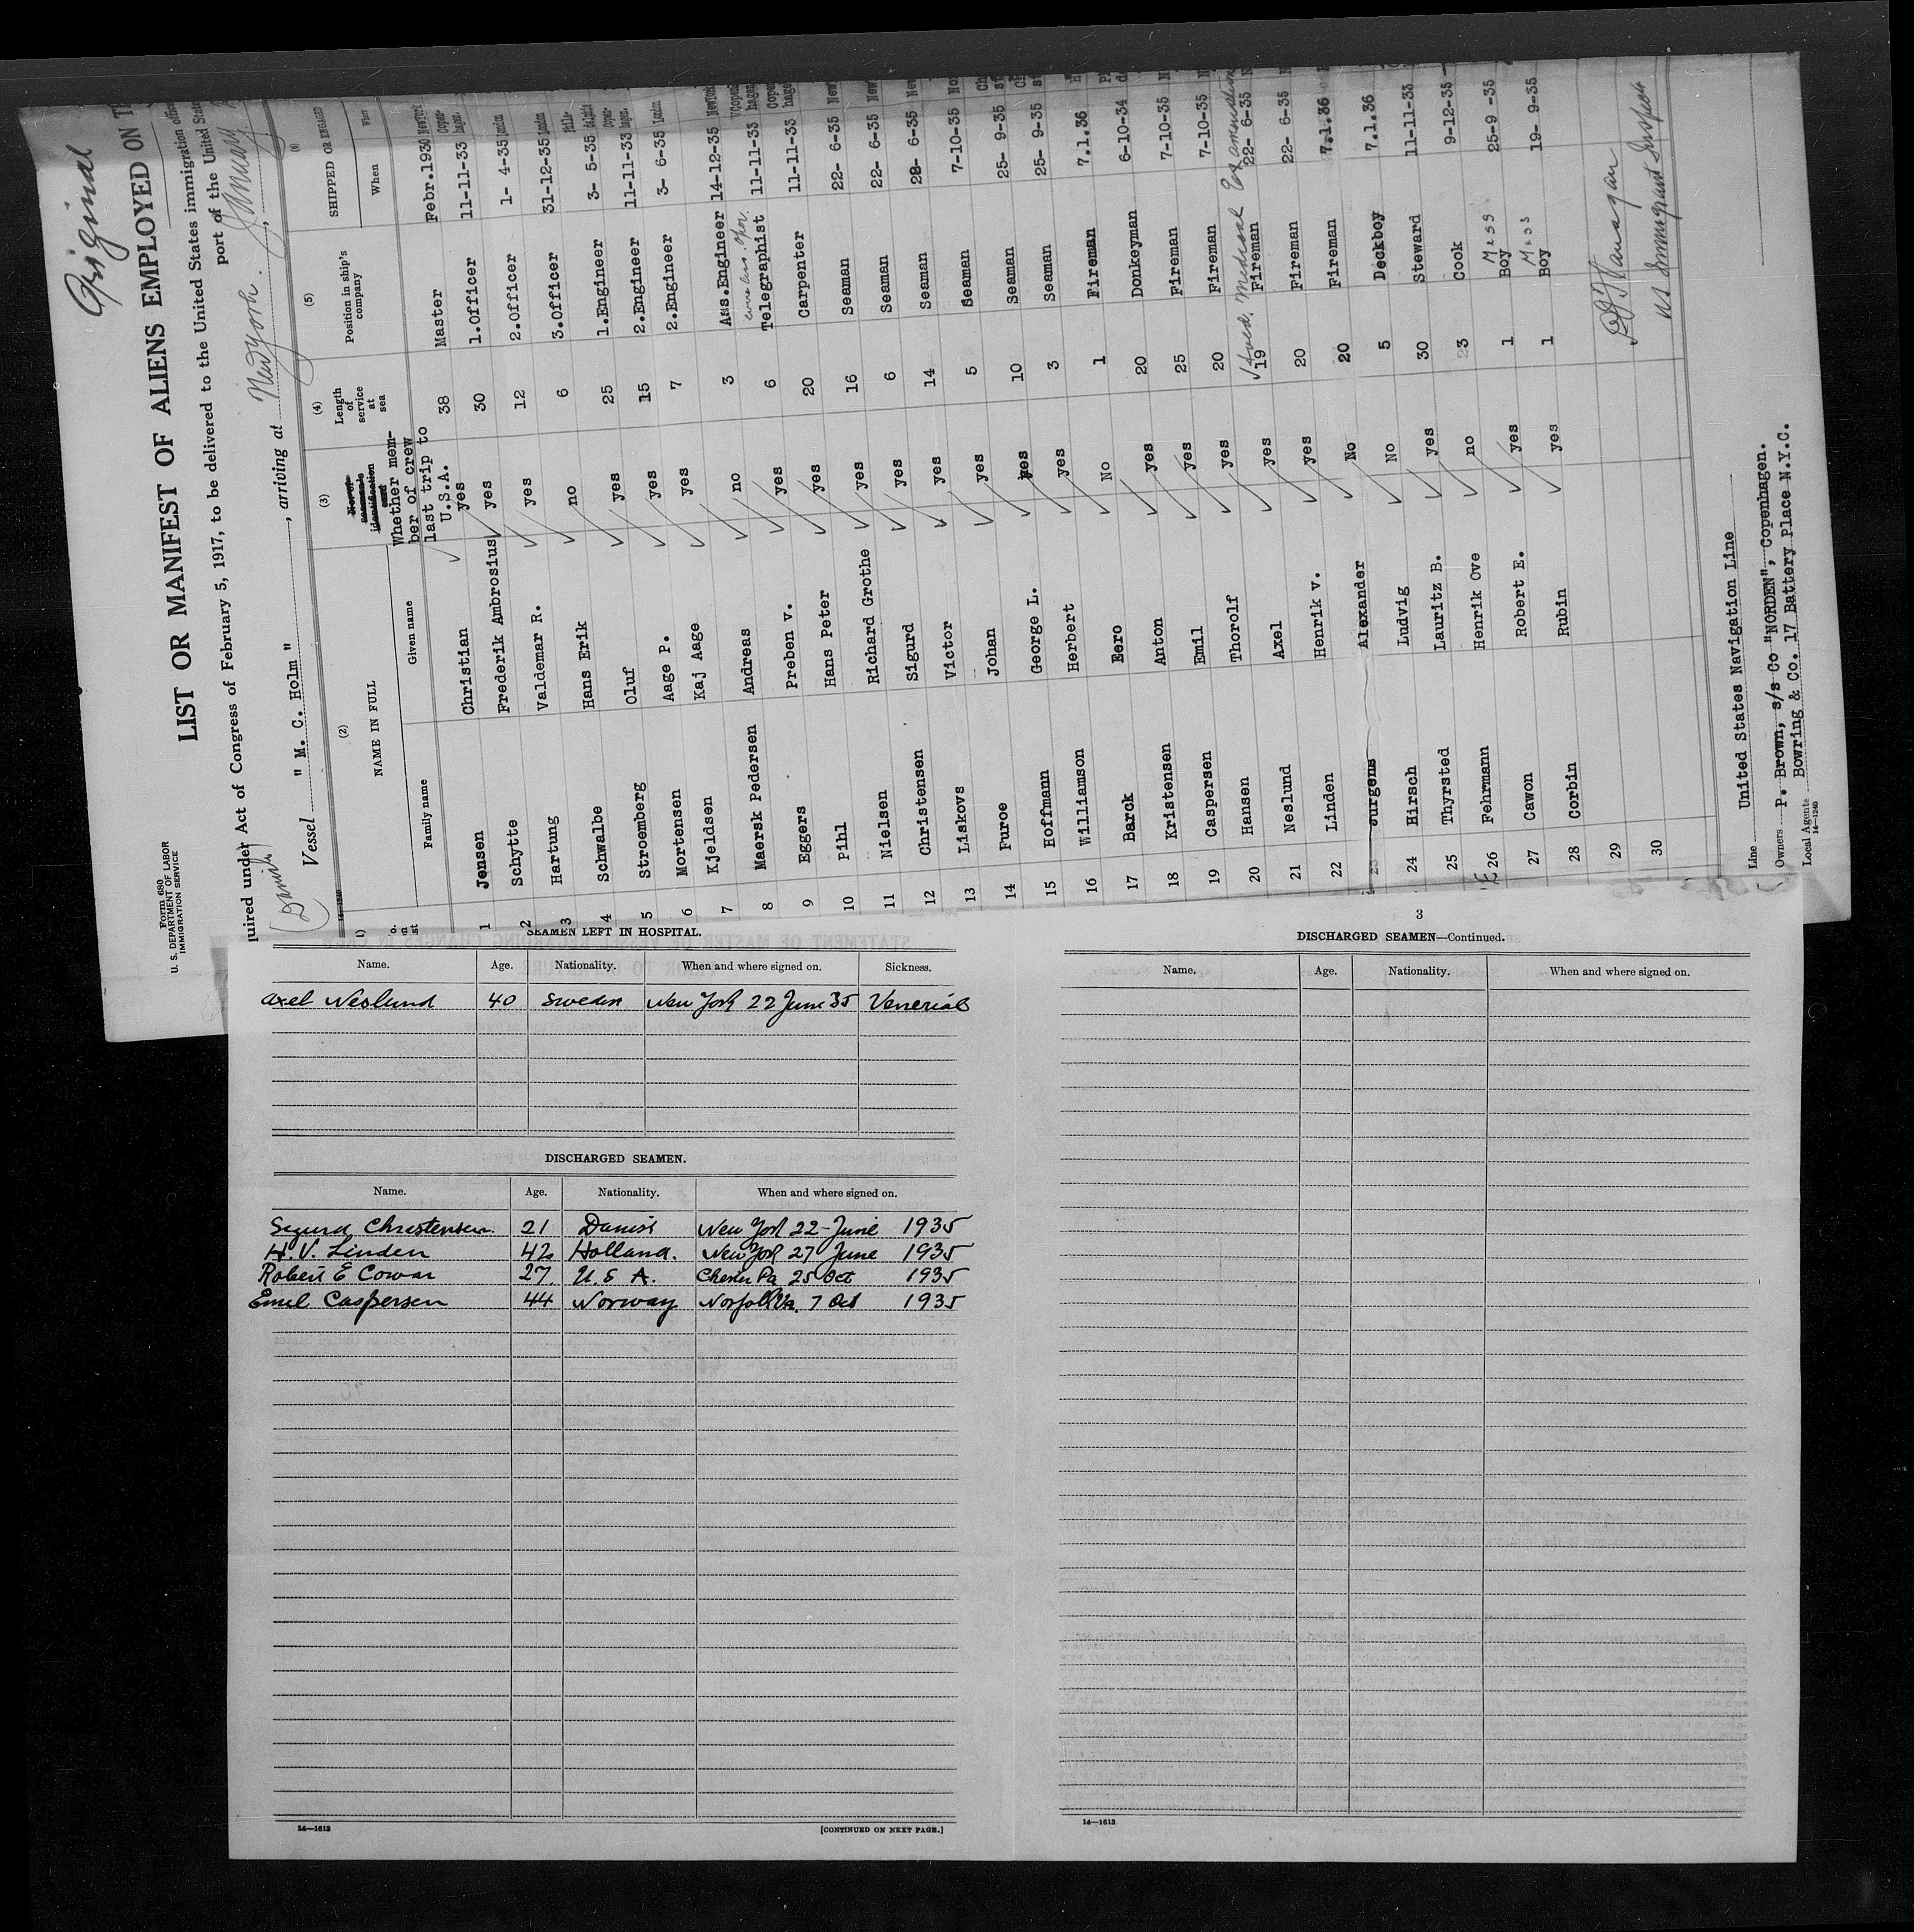 Original
Form 680
U. S. DEPARTMENT OF LABOR
IMMIGRATION SERVICE
LIST OR MANIFEST OF ALIENS EMPLOYED ON
quired under Act of Congress of February 5, 1917, to be delivered to the United States immigration
port of the United
(Danish)
Vessel " M. C. Holm " , arriving at New York. January
(2) (3) (4) (5) (6)
NAME IN FULL
Family name Given name
No. of seaman's identification card
Whether member of crew last trip to U.S.A.
Length of service at sea
Position in ship's company
SHIPPED OR ENGAGED
When
1 Jensen Christian yes 38 Master Febr.1930 New York
2 Schytte Frederik Ambrosius yes 30 1.Officer 11-11-33 Copenhagen.
3 Hartung Valdemar R. yes 12 2.Officer 1- 4-35 London
4 Schwalbe Hans Erik no 6 3.Officer 31-12-35 London
5 Stroemberg Oluf yes 25 1.Engineer 3- 5-35 Philadelphia
6 Mortensen Aage P. yes 15 2.Engineer 11-11-33 Copenhagen.
7 Kjeldsen Kaj Aage yes 7 2.Engineer 3- 6-35 London
8 Maersk Pedersen Andreas no 3 Ass.Engineer 14-12-35 New York
9 Eggers Preben v. yes 6 wireless. Oper. Telegraphist 11-11-33 Copenhagen
10 Pihl Hans Peter yes 20 Carpenter 11-11-33 Copenhagen
11 Nielsen Richard Grothe yes 16 Seaman 22- 6-35 New
12 Christensen Sigurd yes 6 Seaman 22- 6-35 New
13 Liskovs Victor yes 14 Seaman 28- 6-35 New
14 Furoe Johan yes 5 Seaman 7-10-35
15 Hoffmann George L. yes 10 Seaman 25- 9-35
16 Williamson Herbert yes 3 Seaman 25- 9-35
17 Barck Eero No 1 Fireman 7.1.36
18 Kristensen Anton yes 20 Donkeyman 6-10-34
19 Caspersen Emil yes 25 Fireman 7-10-35
20 Hansen Thorolf yes 20 Fireman 7-10-35
Medical
21 Neslund Axel yes 19 Fireman 22- 6-35
22 Linden Henrik v. yes 20 Fireman 22- 6-35
23 Jurgens Alexander No 20 Fireman 7.1.36
24 Hirsch Ludvig No 5 Deckboy 7.1.36
25 Thyrsted Lauritz B. yes 30 Steward 11-11-33
26 Fehrmann Henrik Ove no 23 Cook 9-12-35
27 Cawon Robert E. yes 1 Mess Boy 25-9 -35
28 Corbin Rubin yes 1 Mess Boy 19- 9-35
29
30
US Immigrant Inspector
Line United States Navigation Line
Owners P. Brown, s/s Co "NORDEN", Copenhagen.
Local Agents Bowring & Co. 17 Battery Place N.Y.C.
14—1240
SEAMEN LEFT IN HOSPITAL.
Name. Age. Nationality. When and where signed on. Sickness.
Axel Neslund 40 Sweden New York 22 June 35 Venerial
DISCHARGED SEAMEN.
Name. Age. Nationality. When and where signed on.
Sigurd Christensen 21 Danish New York 22 June 1935
H. V. Linden 42 Holland. New York 27 June 1935
Robert E Cowan 27 U. S A. Chester Pa 25 Oct 1935
Emil Caspersen 44 Norway Norfolk Va. 7 Oct 1935
14—1613
[CONTINUED ON NEXT PAGE.]
3
DISCHARGED SEAMEN—Continued.
Name. Age. Nationality. When and where signed on.
14—1613